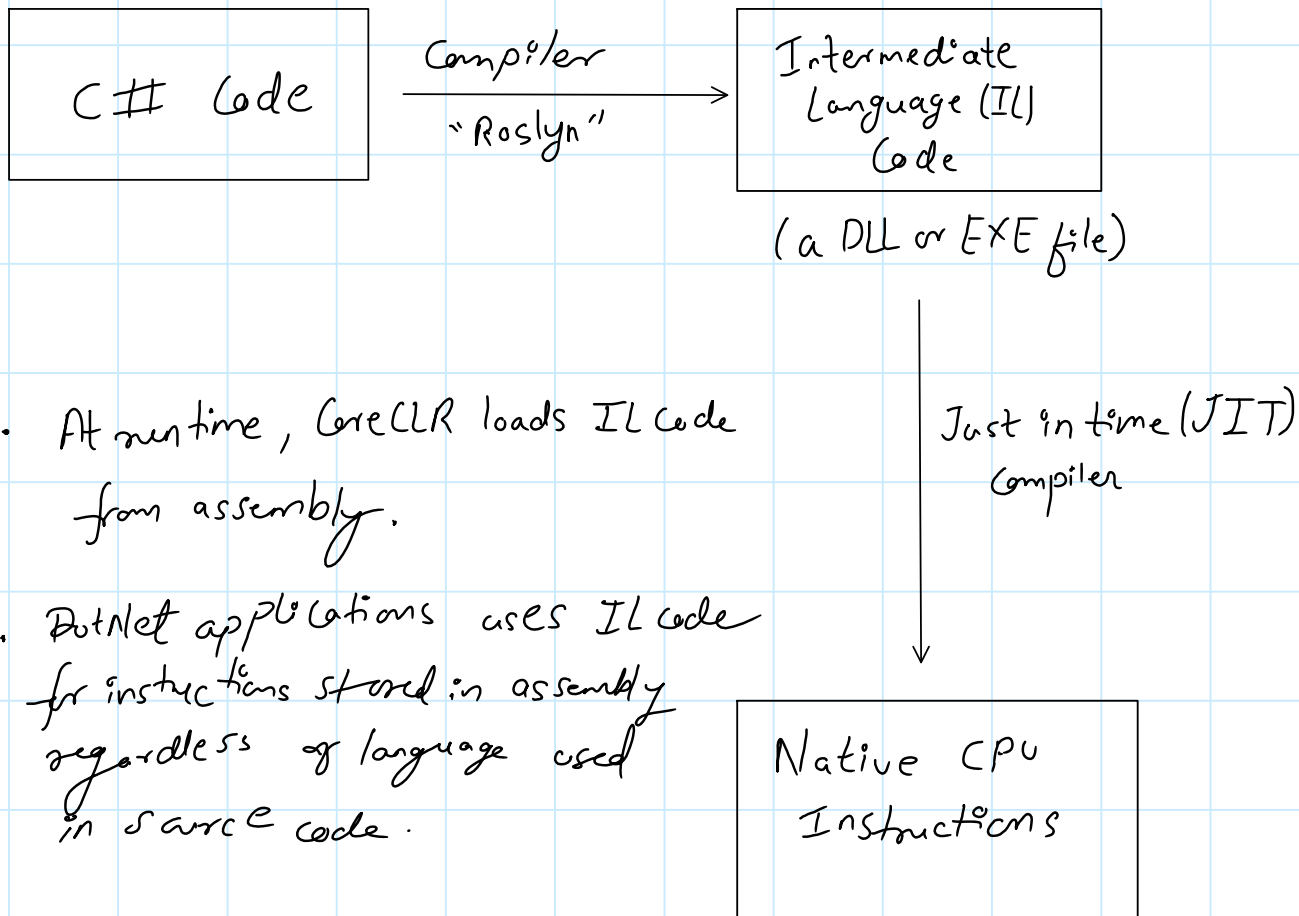 C# Code
Compiler
"Roslyn"
Intermediate
Language (IL)
Code
(a DLL or EXE file)
Just in time (JIT)
Compiler
. At runtime, CoreCLR loads IL Code
from assembly.
. DotNet applications uses IL code
for instuctions stored in assembly
regardless of language used
in source code.
Native CPU
Instructions